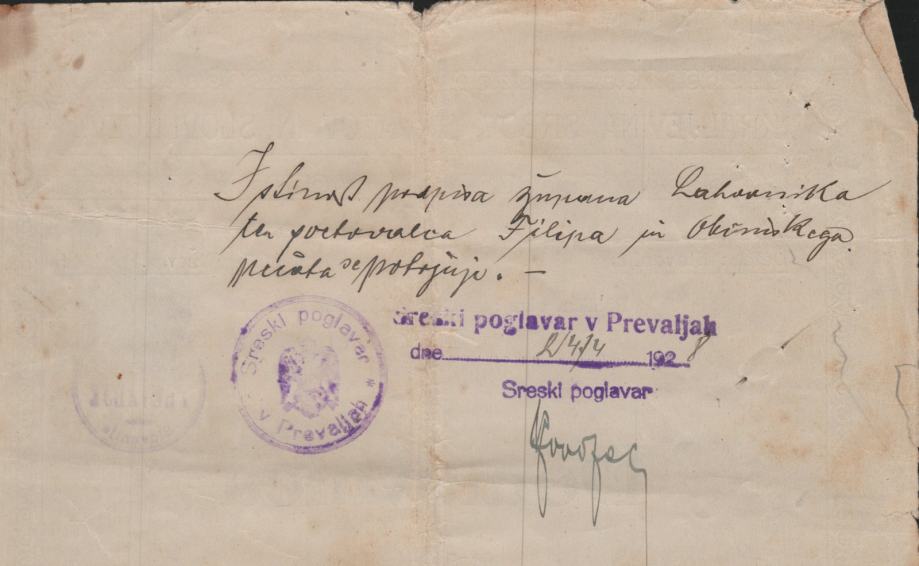 Istinost podpisa župana Lahovnika
ter svetovalca Filipa in Občinskega
pečata se potrjuje. —
Sreski poglavar v Prevaljah
dne 2/4 1928
Sreski poglavar
Sreski poglavar
* v Prevaljah *